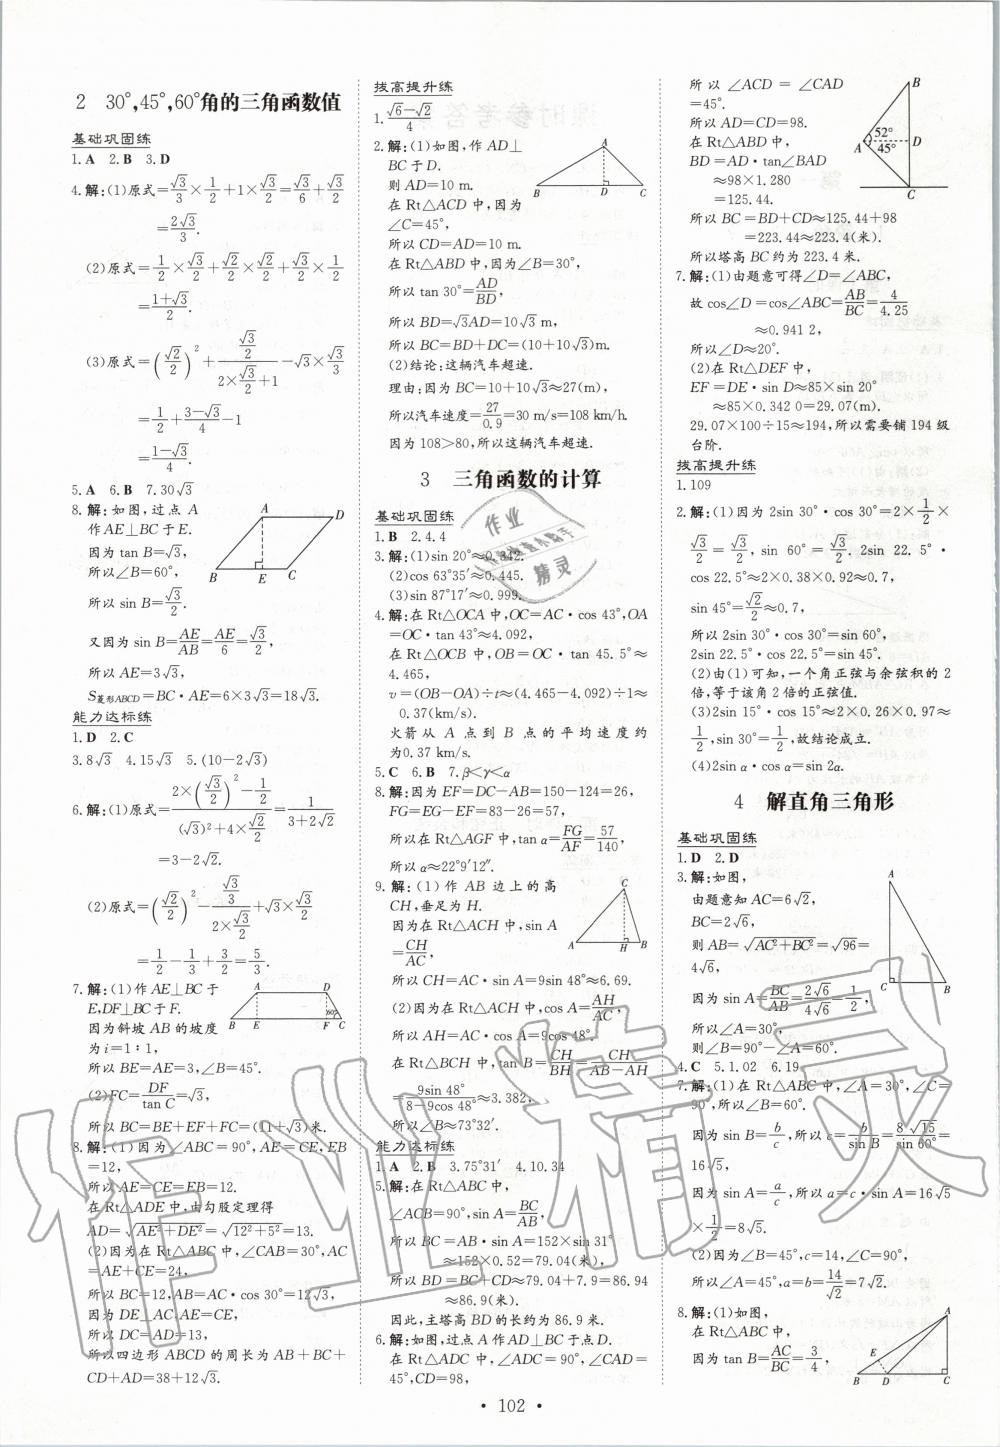 2 30°,45°,60°角的三角函数值
基础巩固练
1.A 2.B 3.D
4.解:(1)原式=√3/3×1/2+1×√3/2=√3/6+√3/2
=2√3/3.
(2)原式=1/2×√3/2+√2/2×√2/2+√3/2×1/2
=(1+√3)/2.
(3)原式=(√2/2)²+(√3/2)/(2×√3/2+1)-√3×√3/3
=1/2+(3-√3)/4-1
=(1-√3)/4.
5.A 6.B 7.30√3
8.解:如图,过点 A
作 AE⊥BC 于 E.
因为 tan B=√3,
所以∠B=60°,
所以 sin B=√3/2.
又因为 sin B=AE/AB=AE/6=√3/2,
所以 AE=3√3,
S菱形ABCD=BC·AE=6×3√3=18√3.
A
D
B
E
C
能力达标练
1.D 2.C
3.8√3 4.15√3 5.(10-2√3)
6.解:(1)原式=(2×(√3/2)²-1/2)/((√3)²+4×√2/2)=1/(3+2√2)
=3-2√2.
(2)原式=(√2/2)²-(√3/3)/(2×√3/2)+√3×√3/2
=1/2-1/3+3/2=5/3.
7.解:(1)作 AE⊥BC 于
E,DF⊥BC 于 F.
因为斜坡 AB 的坡度
为 i=1∶1,
所以 BE=AE=3,∠B=45°.
(2)FC=DF/tan C=√3,
所以 BC=BE+EF+FC=(11+√3)米.
A
D
B
E
F
C
60°
8.解:(1)因为∠ABC=90°,AE=CE,EB
=12,
所以 AE=CE=EB=12.
在 Rt△ADE 中,由勾股定理得
AD=√(AE²+DE²)=√(12²+5²)=13.
(2)因为在 Rt△ABC 中,∠CAB=30°,AC
=AE+CE=24,
所以 BC=12,AB=AC·cos 30°=12√3.
因为 DE⊥AC,AE=CE,
所以 DC=AD=13,
所以四边形 ABCD 的周长为 AB+BC+
CD+AD=38+12√3.
拔高提升练
1.(√6-√2)/4
2.解:(1)如图,作 AD⊥
BC 于 D.
则 AD=10 m.
在 Rt△ACD 中,因为
∠C=45°,
所以 CD=AD=10 m.
在 Rt△ABD 中,因为∠B=30°,
所以 tan 30°=AD/BD,
所以 BD=√3AD=10√3 m,
所以 BC=BD+DC=(10+10√3)m.
(2)结论:这辆汽车超速.
理由:因为 BC=10+10√3≈27(m),
所以汽车速度=27/0.9=30 m/s=108 km/h.
因为 108>80,所以这辆汽车超速.
A
B
D
C
3 三角函数的计算
基础巩固练
1.B 2.4.4
3.解:(1)sin 20°≈0.342.
(2)cos 63°35′≈0.445.
(3)sin 87°17′≈0.999.
4.解:在 Rt△OCA 中,OC=AC·cos 43°,OA
=OC·tan 43°≈4.092,
在 Rt△OCB 中,OB=OC·tan 45.5°≈
4.465,
v=(OB-OA)÷t≈(4.465-4.092)÷1≈
0.37(km/s).
火箭从 A 点到 B 点的平均速度约
为 0.37 km/s.
5.C 6.B 7.β<γ<α
8.解:因为 EF=DC-AB=150-124=26,
FG=EG-EF=83-26=57,
所以在 Rt△AGF 中,tan α=FG/AF=57/140,
所以 α≈22°9′12″.
9.解:(1)作 AB 边上的高
CH,垂足为 H.
因为在 Rt△ACH 中,sin A
=CH/AC,
所以 CH=AC·sin A=9sin 48°≈6.69.
(2)因为在 Rt△ACH 中,cos A=AH/AC,
所以 AH=AC·cos A=9cos 48°.
在 Rt△BCH 中,tan B=CH/BH=CH/(AB-AH)
=9sin 48°/(8-9cos 48°)≈3.382,
所以∠B≈73°32′.
C
A
H
B
能力达标练
1.A 2.B 3.75°31′ 4.10.34
5.解:在 Rt△ABC 中,
∠ACB=90°,sin A=BC/AB,
所以 BC=AB·sin A=152×sin 31°
≈152×0.52=79.04(米),
所以 BD=BC+CD≈79.04+7.9=86.94
≈86.9(米).
因此,主塔高 BD 的长约为 86.9 米.
6.解:如图,过点 A 作 AD⊥BC 于点 D.
在 Rt△ADC 中,∠ADC=90°,∠CAD=
45°,CD=98,
所以∠ACD=∠CAD
=45°.
所以 AD=CD=98.
在 Rt△ABD 中,
BD=AD·tan∠BAD
≈98×1.280
=125.44.
所以 BC=BD+CD≈125.44+98
=223.44≈223.4(米).
所以塔高 BC 约为 223.4 米.
B
52°
A
45°
D
C
7.解:(1)由题意可得∠D=∠ABC,
故 cos∠D=cos∠ABC=AB/BC=4/4.25
≈0.941 2,
所以∠D≈20°.
(2)在 Rt△DEF 中,
EF=DE·sin D≈85×sin 20°
≈85×0.342 0=29.07(m).
29.07×100÷15≈194,所以需要铺 194 级
台阶.
拔高提升练
1.109
2.解:(1)因为 2sin 30°·cos 30°=2×1/2×
√3/2=√3/2, sin 60°=√3/2. 2sin 22.5°·
cos 22.5°≈2×0.38×0.92≈0.7,
sin 45°=√2/2≈0.7,
所以 2sin 30°·cos 30°=sin 60°,
2sin 22.5°·cos 22.5°=sin 45°.
(2)由(1)可知,一个角正弦与余弦积的 2
倍,等于该角 2 倍的正弦值.
(3)2sin 15°·cos 15°≈2×0.26×0.97≈
1/2,sin 30°=1/2,故结论成立.
(4)2sin α·cos α=sin 2α.
4 解直角三角形
基础巩固练
1.D 2.D
3.解:如图,
由题意知 AC=6√2,
BC=2√6,
则 AB=√(AC²+BC²)=√96=
4√6,
因为 sin A=BC/AB=2√6/4√6=1/2,
所以∠A=30°,
则∠B=90°-∠A=60°.
A
C
B
4.C 5.1.02 6.19
7.解:(1)在 Rt△ABC 中,∠A=30°,∠C=
90°,所以∠B=60°.
因为 sin B=b/c,所以 c=b/sin B=8√15/sin 60°=
16√5,
因为 sin A=a/c,所以 a=c·sin A=16√5
×1/2=8√5.
(2)因为∠B=45°,c=14,∠C=90°,
所以∠A=45°,a=b=14/√2=7√2.
8.解:(1)如图,
因为 tan B=AC/BC=3/4,
A
E
B
D
C
· 102 ·
作业
精灵
作业精灵